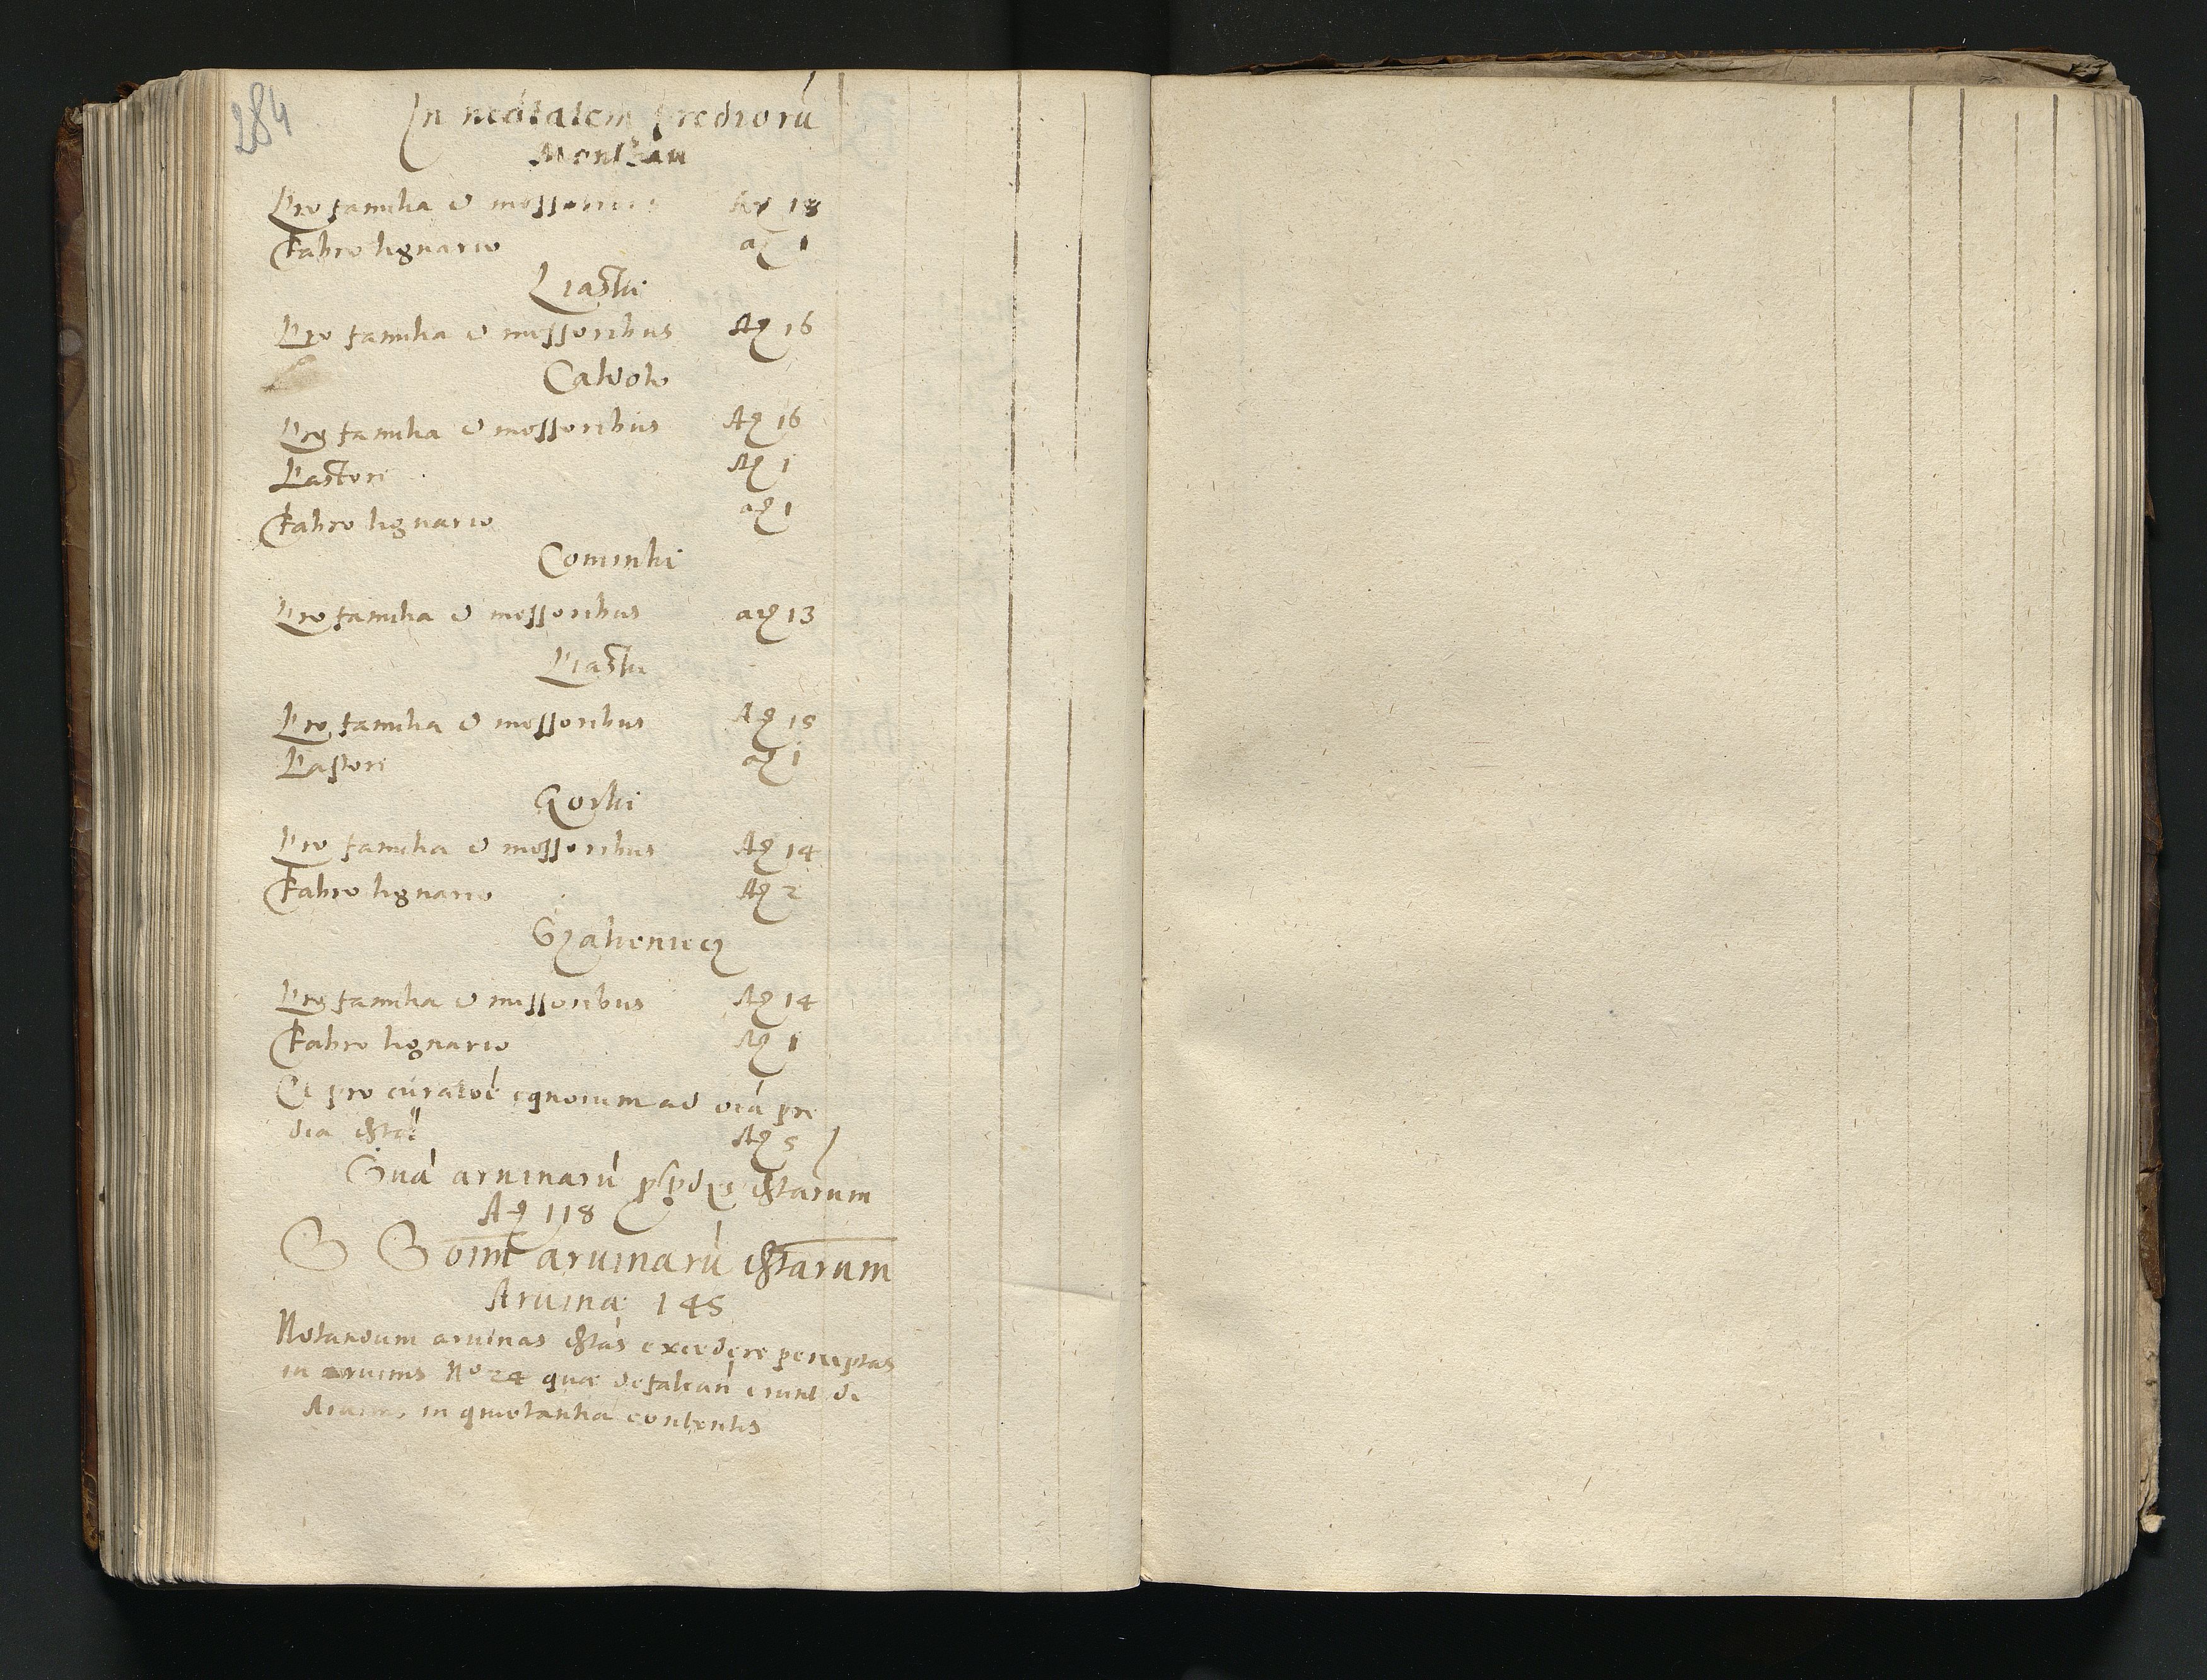 284
In necitatem prediorũ
Pro familia & messoribus Ar 18
Fabro lignario ar 1
Piaski
Pro familia & messoribus Ar 16
Calwolw
Pro familia & messoribus Ar 16
Pastori Ar 1
Fabro lignario ar 1
Cominki
Pro familia & messoribus ar 13
Piaski
Pro familia & messoribus Ar 15
Pastori ar 1
Gorki
Pro familia & messoribus Ar 14
Fabro lignario Ar 2
Pro familia & messoribus Ar 14
Fabro lignario Ar 1
Et pro curatoẽ equorum ad oĩa pre
dia Ar 5
aruinarũ
Ar 118
S S oim̃ aruinarũ exˢtarum
Aruinæ 145
Notandum aruinas exˢtas excedere perceptas
in aruinis No 24 quæ defalcari erunt de
in quietantia contentis